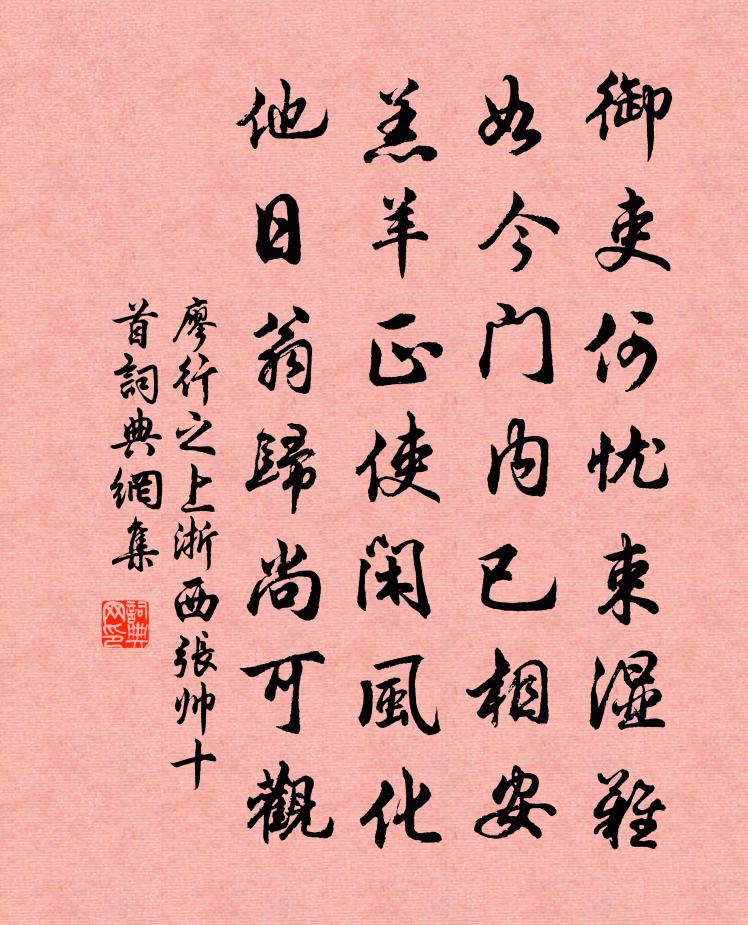 御吏何忧束湿難
如今门内已相安
羔羊正使闲風化
他日翁歸尚可觀
廖行之上浙西張帅十
首詞典網集
詞典网印